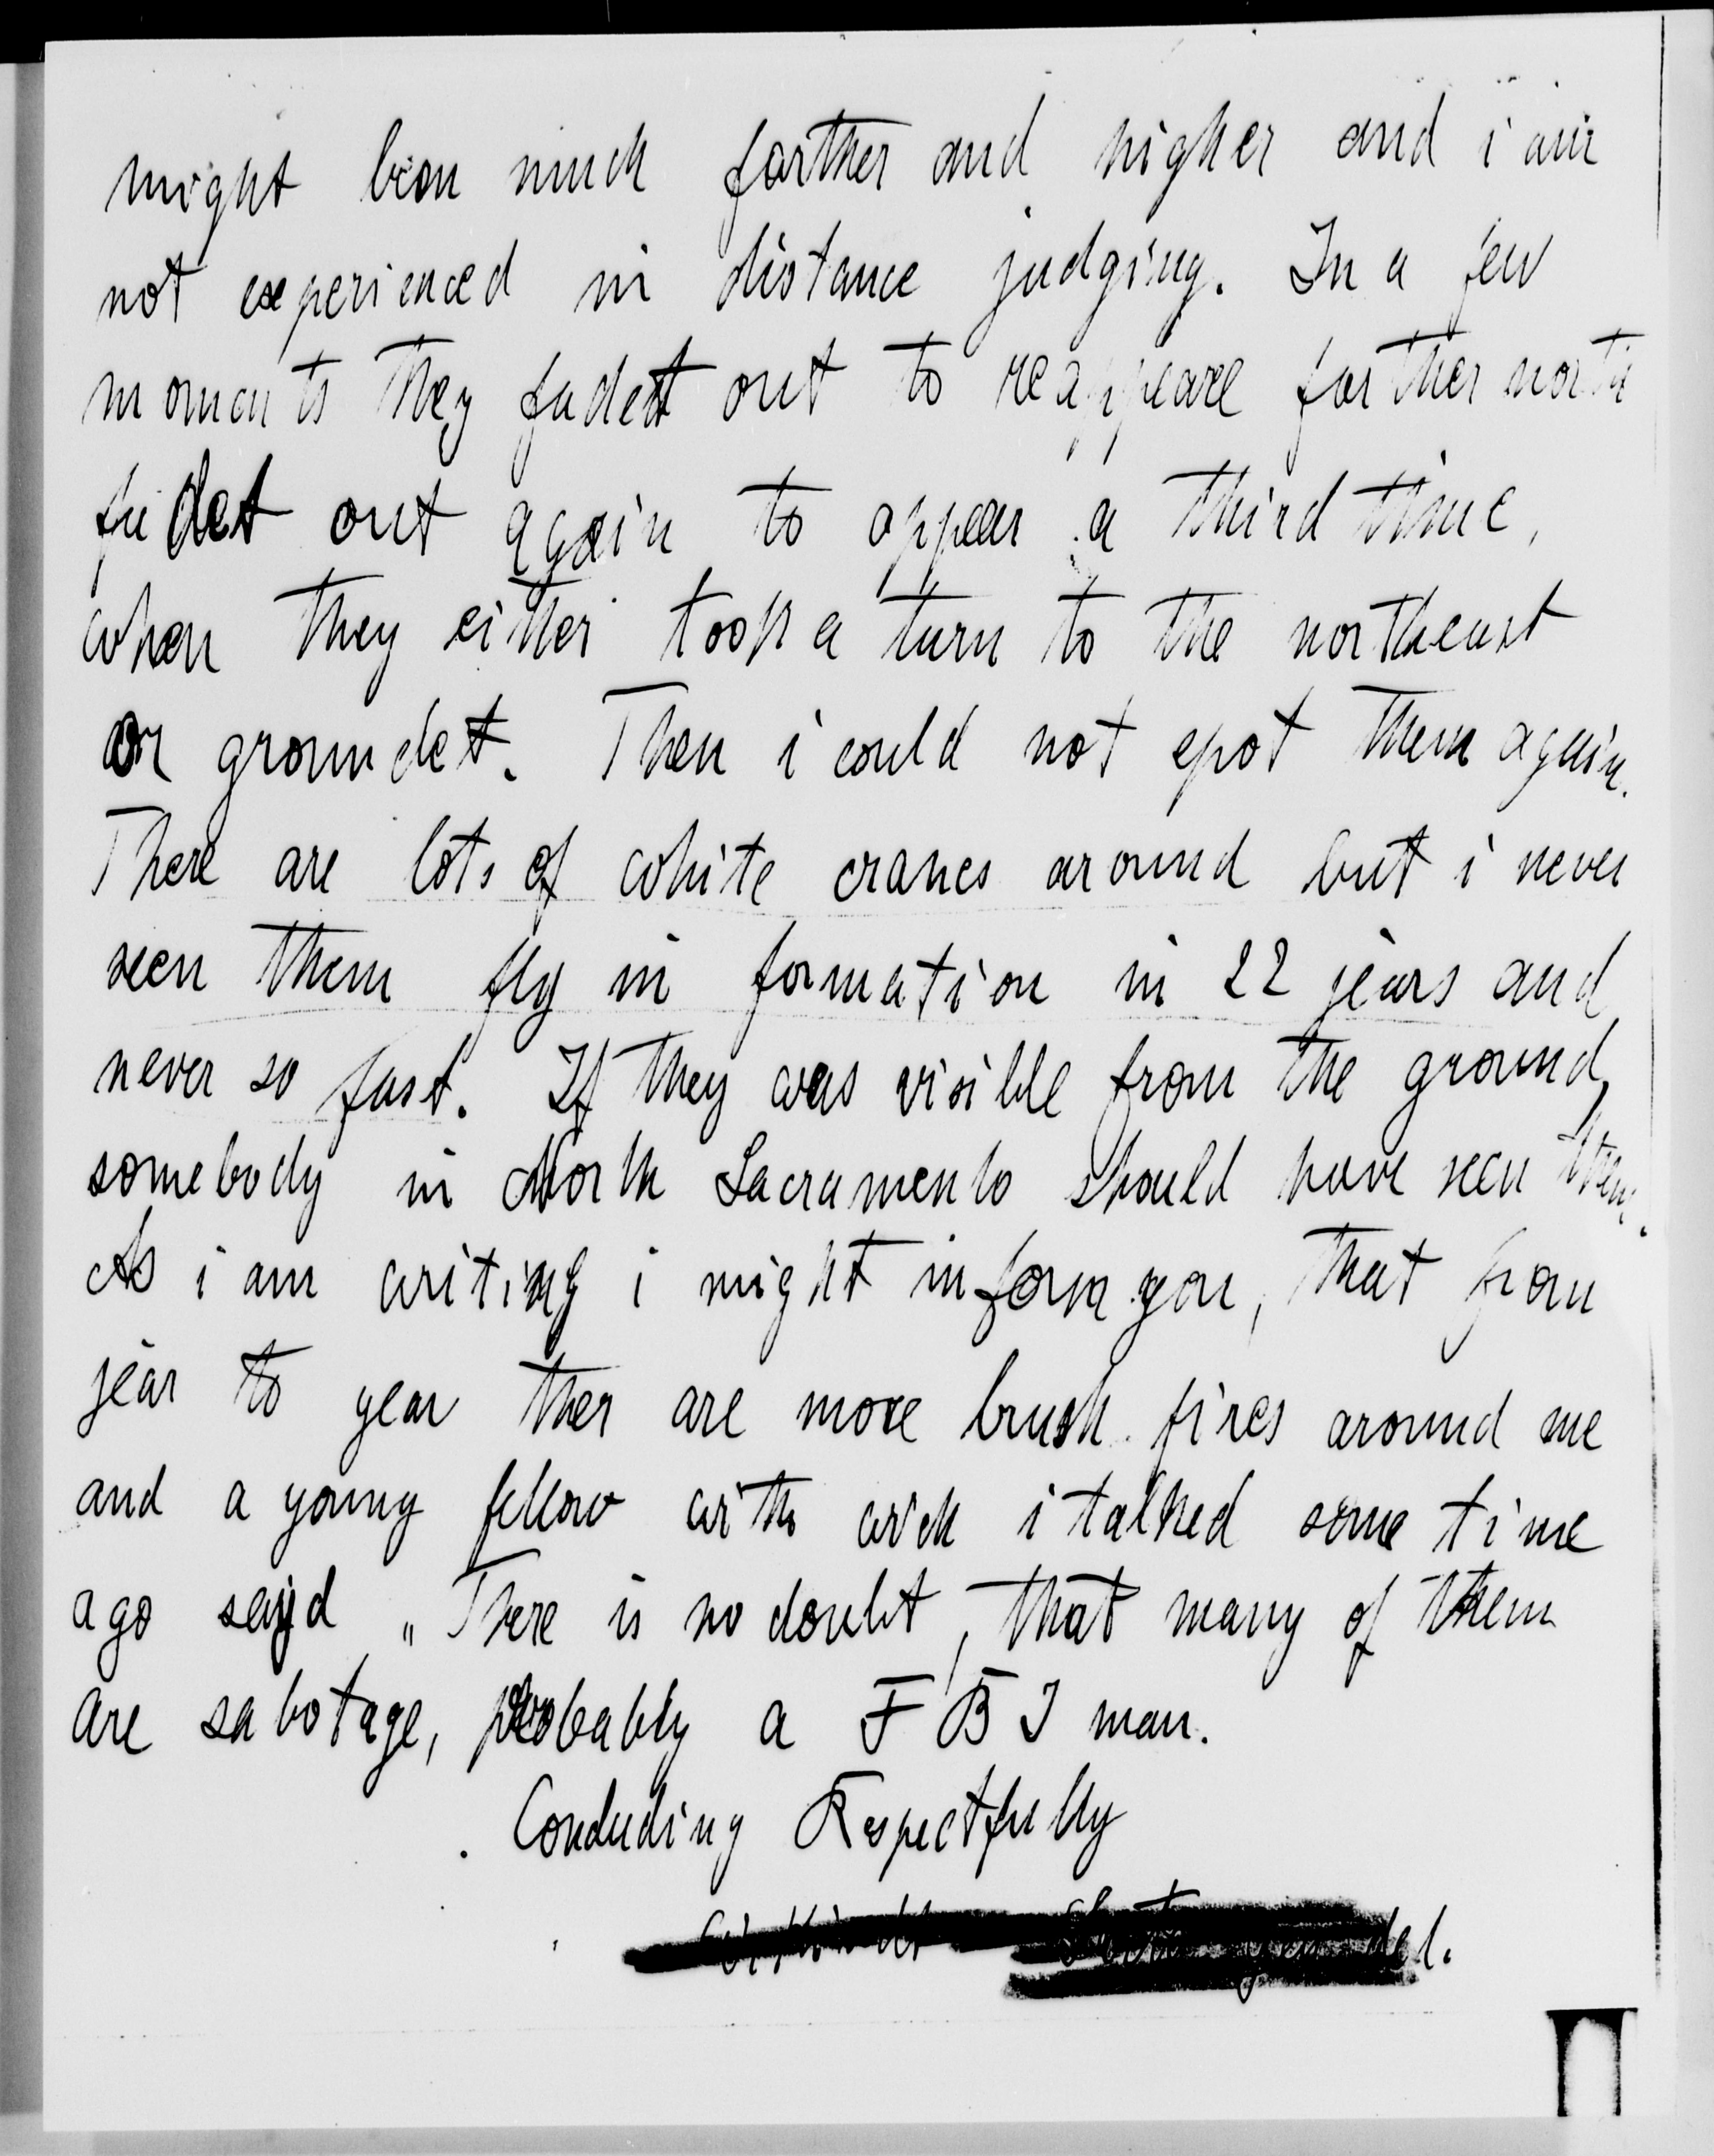 might bean much farther and higher and i am
not experienced in distance judging. In a few
moments they fadet out to reappeare farther north
fadet out again to appear a third time,
when they either took a turn to the northeast
or groundet. Then i could not spot them again.
There are lots of white cranes around but i never
seen them fly in formation in 22 jears and
never so fast. If they was visible from the ground,
somebody in North Sacramento should have seen them.
As i am writing i might inform you, that from
jear to year ther are more brush fires around me
and a young fellow with wich i talked some time
ago sayd „There is no doubt, that many of them
are sabotage, probably a F B I man.
Concluding Respectfully